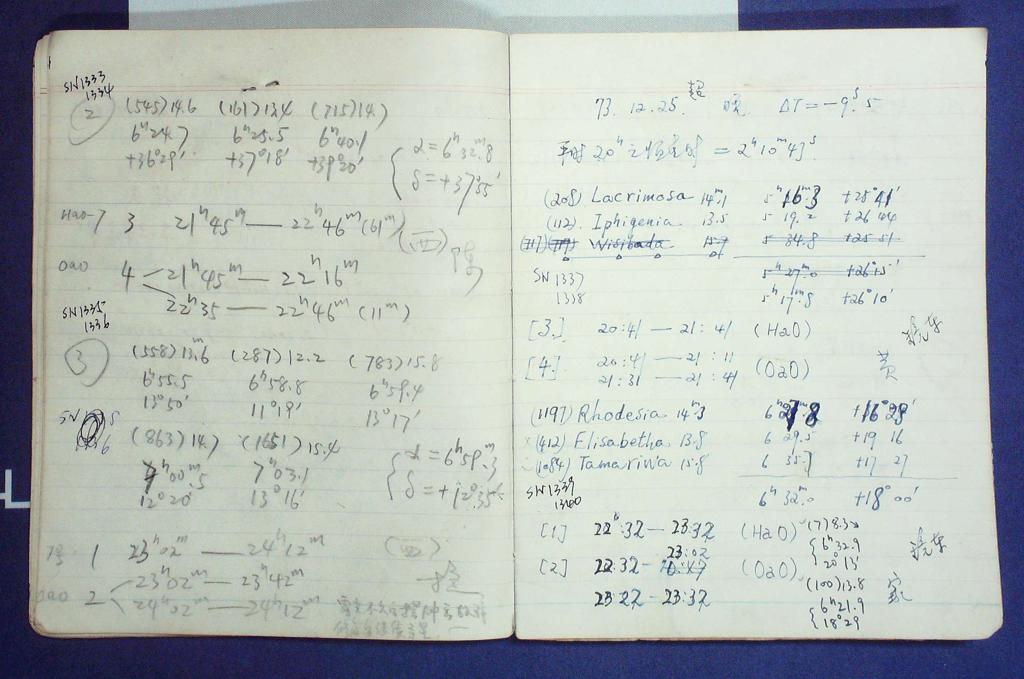 SN1333
1334
2 (545)14.6 (161)13.4 (715)14.
6ʰ24.7 6ʰ25.5 6ʰ40.1
+36°29′ +37°18′ +39°20′
α=6ʰ32ᵐ.8
δ=+37°55′
Hao-7 3 21ʰ45ᵐ — 22ʰ46ᵐ(61ᵐ) (四) 陈
Oao 4 21ʰ45ᵐ — 22ʰ16ᵐ
22ʰ35 — 22ʰ46ᵐ (11ᵐ)
SN1335
1336
3 (558)13ᵐ.6 (287)12.2 (783)15.8
6ʰ55.5 6ʰ58.8 6ʰ59.4
13°50′ 11°19′ 13°17′
(863)14.7 (1651)15.4
7ʰ00.5 7ʰ03.1
12°20′ 13°16′
α=6ʰ59ᵐ.3
δ=+12°35′
1 23ʰ02ᵐ — 24ʰ12ᵐ (四)
oao 2 23ʰ02ᵐ — 23ʰ42ᵐ
24ʰ02ᵐ — 24ʰ12ᵐ
73. 12. 25 晚 ΔT=-9ˢ.5
平时20ʰ之恒星时 = 2ʰ10ᵐ43ˢ
(208) Lacrimosa 14ᵐ.1 5ʰ16ᵐ.3 +25°41′
(112) Iphigenia 13.5 5 19.2 +26 44
(717) Wisibada 15.7 5 34.8 +25 51
5ʰ27ᵐ.0 +26°15′
SN1337
1338 5ʰ17ᵐ.8 +26°10′
[3.] 20:41 — 21:41 (HaO)
[4.] 20:41 — 21:11 (OaO) 黄
21:31 — 21:41
(1197) Rhodesia 14ᵐ.3 6ʰ27.8 +16°28′
(412) Elisabetha 13.8 6 29.5 +19 16
(1084) Tamariwa 15.8 6 35.7 +17 27
SN1339
1340 6ʰ32ᵐ.0 +18°00′
[1] 22ʰ:32 — 23:32 (HaO) (7)8.3
6ʰ32.9
20°13′
23:02
[2] 22:32 — (OaO)
(100)13.8
23:22 — 23:32
6ʰ21.9
18°29